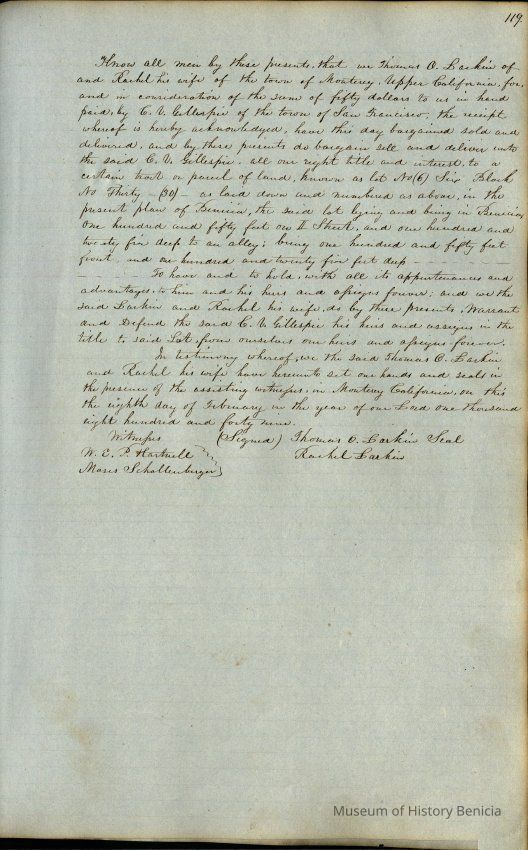 119.
Know all men by these presents, that we Thomas O. Larkin of
and Rachel his wife of the town of Monterey, Upper California, for,
and in consideration of the sum of fifty dollars to us in hand
paid, by C. V. Gillespie of the town of San Francisco, the receipt
whereof is hereby acknowledged, have this day bargained sold and
delivered, and by these presents do bargain sell and deliver unto
the said C. V. Gillespie, all our right title and interest, to a
certain tract or parcel of land, known as lot No (6) Six Block
No Thirty - (30) - as laid down and numbered as above, in the
present plan of Benicia, the said lot lying and being in Benicia
One hundred and fifty feet on II Street, and one hundred and
twenty five deep to an alley; being one hundred and fifty feet
front and one hundred and twenty five feet deep -
To have and to hold, with all its appurtenances and
advantages, to him and his heirs and assigns forever; and we the
said Larkin and Rachel his wife, do by these presents, Warrant
and Defend the said C. V. Gillespie his heirs and assigns in the
title to said Lot from ourselves our heirs and assigns forever.
In testimony whereof, we the said Thomas O. Larkin
and Rachel his wife have hereunto set our hands and seals in
the presence of the assisting witnesses, in Monterey California, on this
the eighth day of February in the year of our Lord one thousand
eight hundred and forty nine.
Witness (Signed) Thomas O. Larkin Seal
W. E. P. Hartnell Rachel Larkin
Moses Schallenberger
Museum of History Benicia